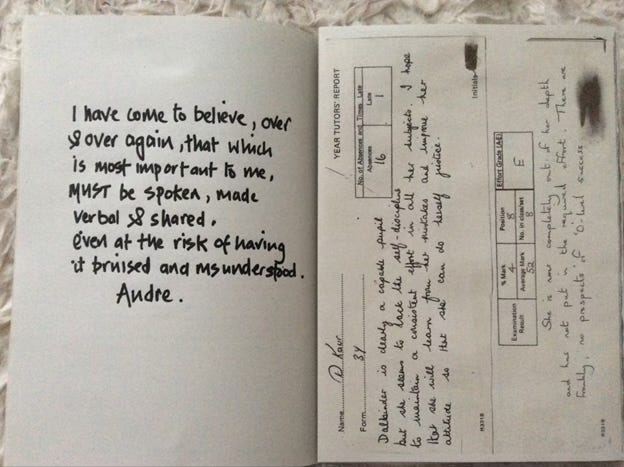 I have come to believe, over
& over again, that which
is most important to me,
MUST be spoken, made
verbal & shared,
even at the risk of having
it bruised and msunderstood.
Andre.
YEAR TUTORS' REPORT
Name D Kaur
Form 3Y
No. of Absences and Times Late
Absences Late
16 1
Dalbinder is clearly a capable pupil
but she seems to lack the self-discipline
to maintain a consistent effort in all her subjects. I hope
that she will learn from her mistakes and improve her
attitude so that she can do herself justice.
Initials
R3318
Examination Result
% Mark Position Effort Grade (A-E)
4 8 E
Average Mark No. in class/set
52 8
She is now completely out of her depth
and has not put in the required effort. There are
frankly, no prospects of 'O' level success
R3318